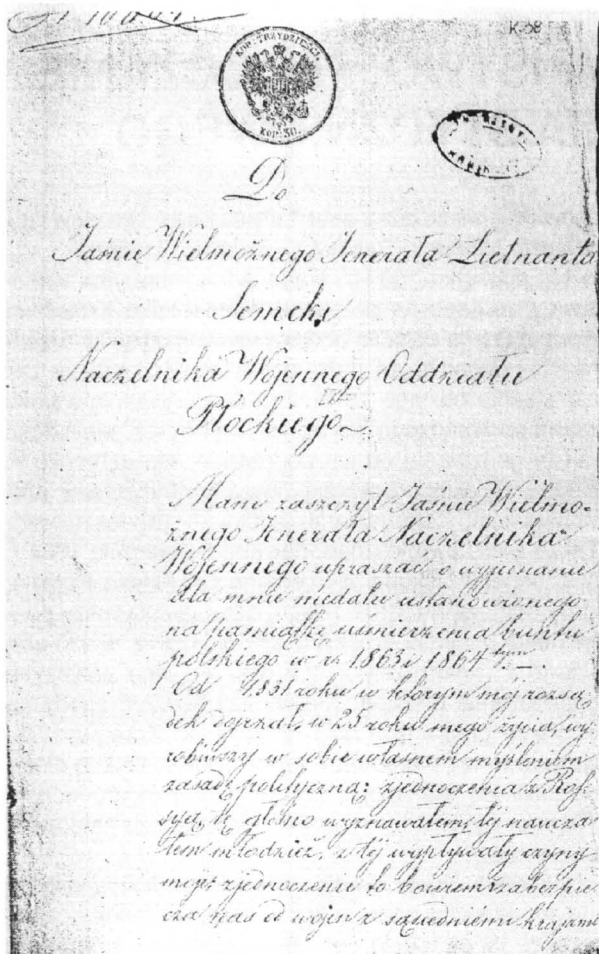 K-58
KOP. TRZYDZIEŚCI
KOP. 30.
Do
Jaśnie Wielmożnego Jenerała Lietnanta
Semeki
Naczelnika Wojennego Oddziału
Płockiego
Mam zaszczyt Jaśnie Wielmo-
żnego Jenerała Naczelnika
Wojennego upraszać o wyjednanie
dla mnie medalu ustanowionego
na pamiątkę uśmierzenia buntu
polskiego w r. 1863 i 1864 tym.
Od 1831 roku w którym mój rozsą
dek dojrzał, w 25 roku mego życia, wy
robiwszy w sobie własnem myśleniem
zasadę polityczną: zjednoczenia z Ros-
syą, tę głośno wyznawałem, tej naucza
łem młodzież, z tej wypływały czyny
moje: zjednoczenie to bowiem zabezpie
cza nas od wojen z sąsiedniemi krajami